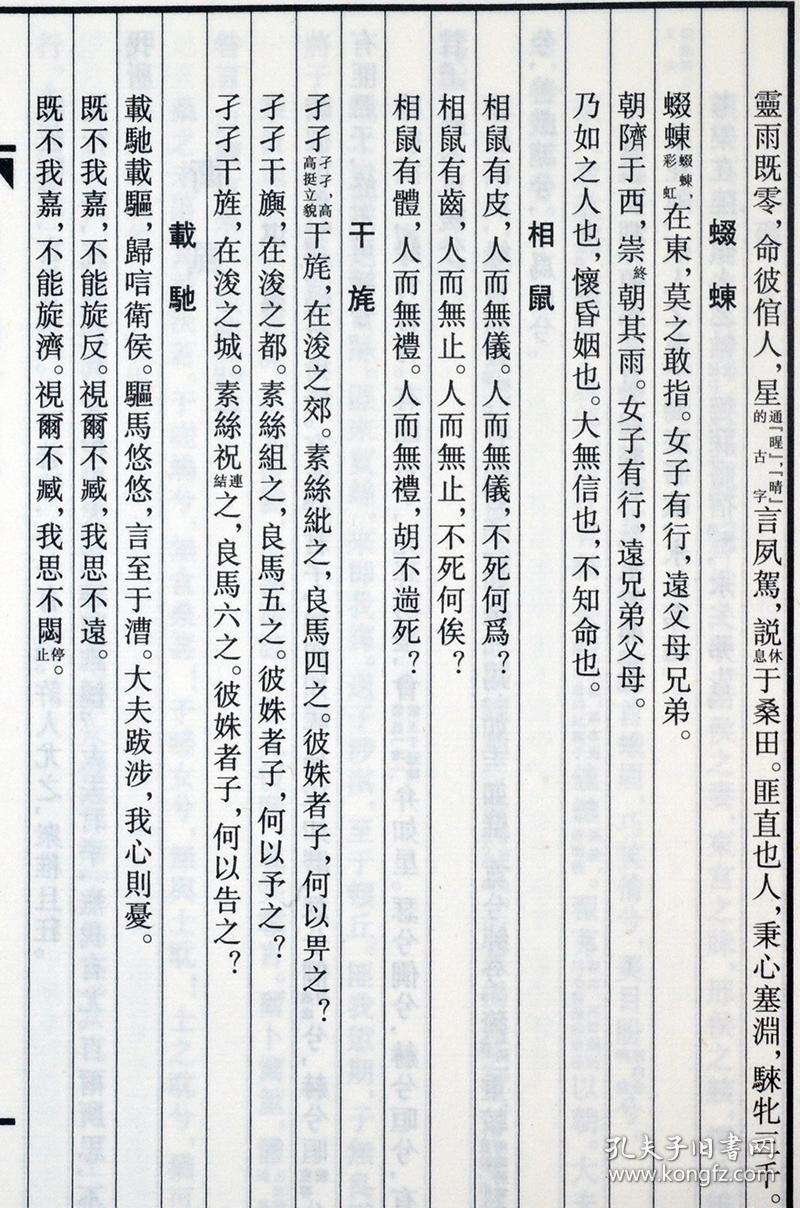 靈雨既零，命彼倌人，星通『暒』；『晴』的古字言夙駕，説休息于桑田。匪直也人，秉心塞淵，騋牝三千。
蝃蝀
蝃蝀蝃蝀，彩虹在東，莫之敢指。女子有行，遠父母兄弟。
朝隮于西，崇終朝其雨。女子有行，遠兄弟父母。
乃如之人也，懷昏姻也。大無信也，不知命也。
相鼠
相鼠有皮，人而無儀。人而無儀，不死何爲？
相鼠有齒，人而無止。人而無止，不死何俟？
相鼠有體，人而無禮。人而無禮，胡不遄死？
干旄
孑孑孑孑，高高挺立貌干旄，在浚之郊。素絲紕之，良馬四之。彼姝者子，何以畀之？
孑孑干旟，在浚之都。素絲組之，良馬五之。彼姝者子，何以予之？
孑孑干旌，在浚之城。素絲祝連結之，良馬六之。彼姝者子，何以告之？
載馳
載馳載驅，歸唁衛侯。驅馬悠悠，言至于漕。大夫跋涉，我心則憂。
既不我嘉，不能旋反。視爾不臧，我思不遠。
既不我嘉，不能旋濟。視爾不臧，我思不閟停止。
孔夫子旧书网
www.kongfz.com